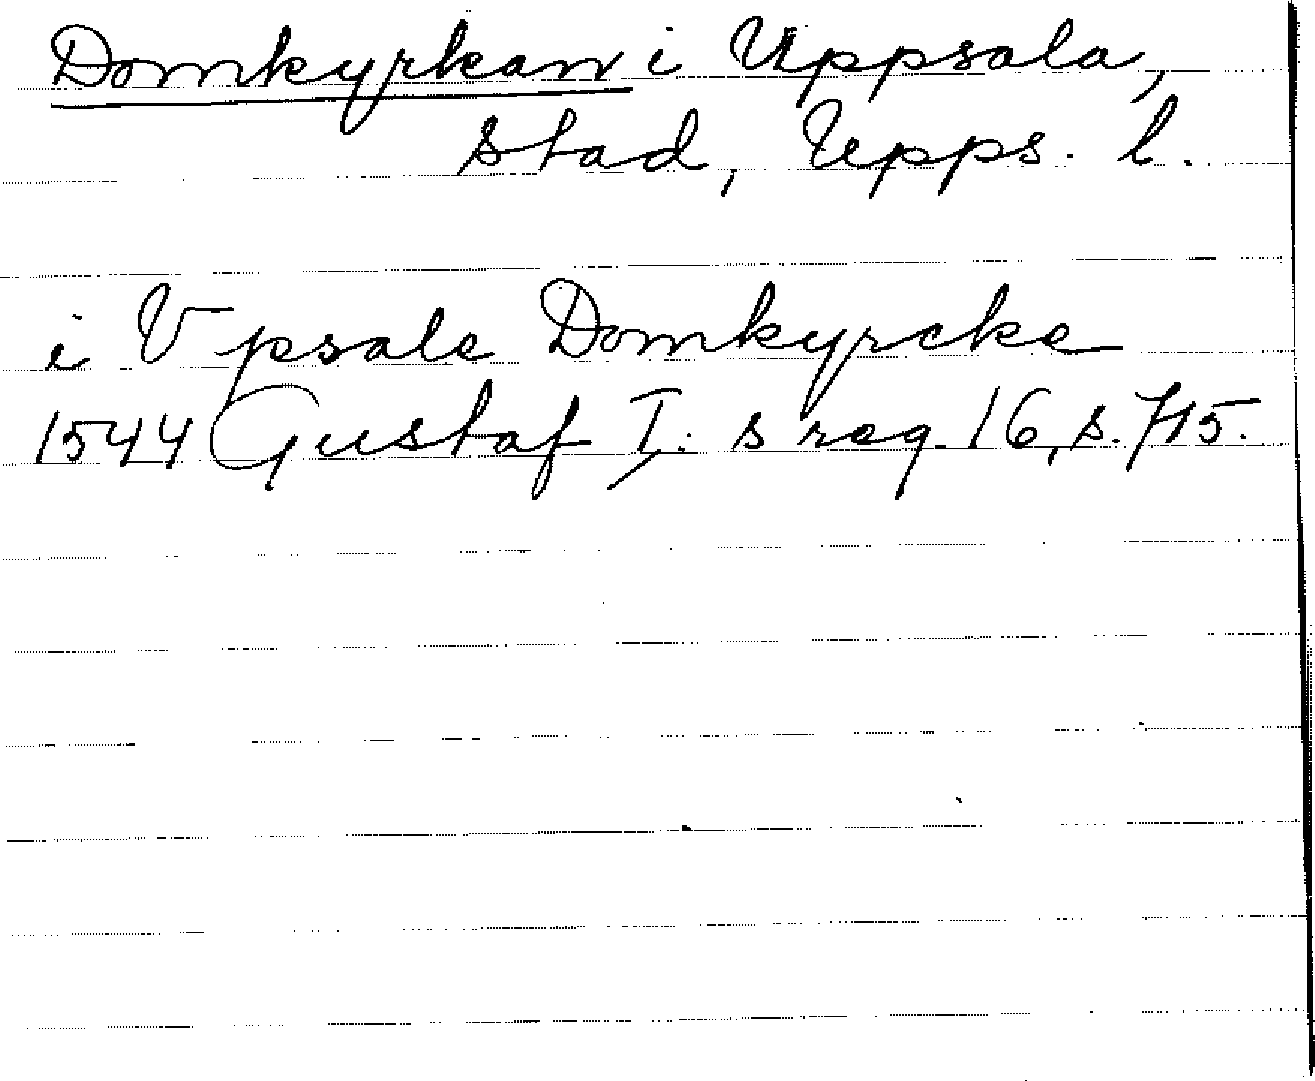 Domkyrkan i Uppsala,
stad, Upps. l.
i Vpsale Domkyrcke
1544 Gustaf I: s reg. 16, s. 715.